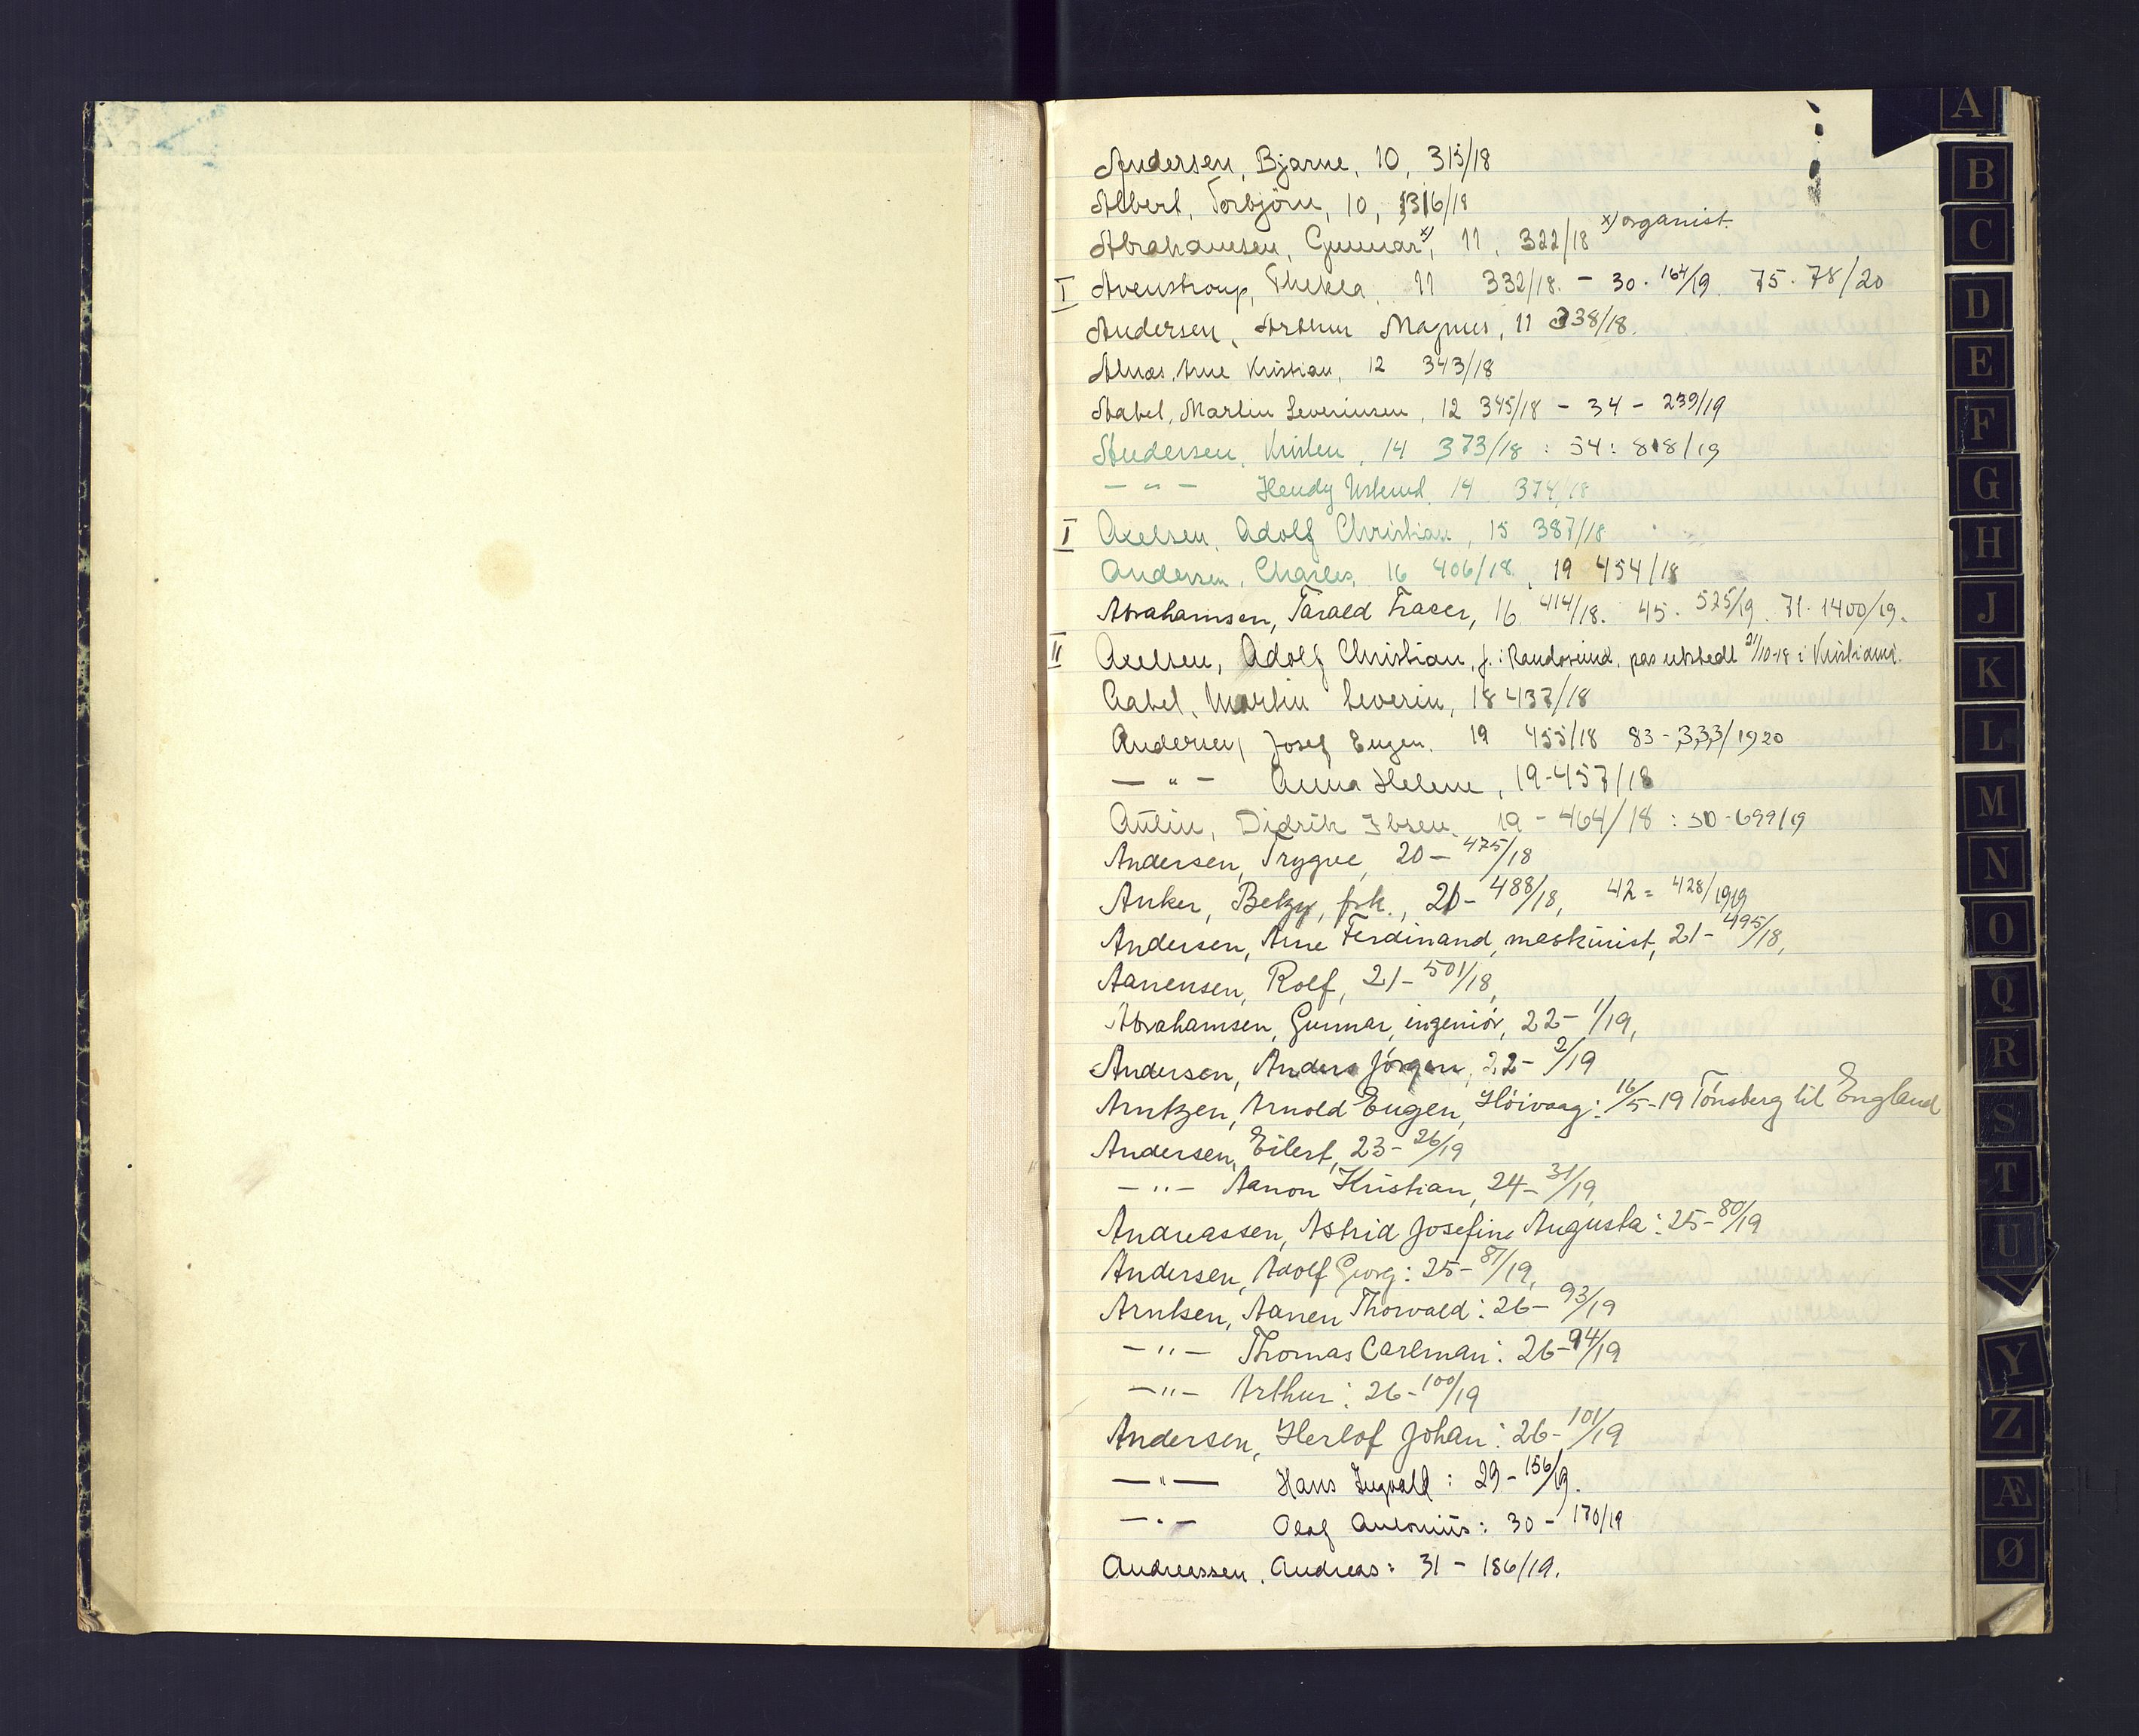 Andersen, Bjarne, 10, 315/18
Albert, Torbjörn, 10, 316/18
Abrahamsen, Gunnar x), 11, 322/18 x) organist.
I Avenstroup, Thekla, 11 332/18. - 30. 164/19. 75. 78/20
Andersen, Arthur Magnus, 11 338/18.
Alnæs, Arne Kristian, 12 343/18
Aabel, Martin Severinsen, 12 345/18 - 34 - 239/19
Andersen, Kristen, 14 373/18 : 54: 818/19
- " - Hendy 14 374/18
I Axelsen, Adolf Christian, 15 387/18
Andersen, Charles, 16 406/18, 19 454/18
Abrahamsen, Tarald 16 414/18. 45. 525/19. 71. 1400/19.
II Axelsen, Adolf Christian, f. i Randøsund, pas utstedt 21/10-18 i Kristians.
Aabel, Martin Severin, 18 437/18
Andersen, Josef Eugen. 19 455/18 83 - 333/1920
- " - Anna Helene, 19-457/18
Aulin, Didrik Ibsen, 19 - 464/18 : 50-699/19
Andersen, Trygve, 20 - 475/18
Anker, Betzy, frk., 21- 488/18, 42 = 428/1919
Andersen, Arne Ferdinand, maskinist, 21- 495/18,
Aanensen, Rolf, 21- 501/18,
Abrahamsen, Gunnar, ingeniör, 22- 1/19,
Andersen, Anders Jörgen, 22- 2/19
Arntzen, Arnold Eugen, Höivaag: 16/5-19 Tönsberg til England
Andersen, Eilert, 23- 26/19
- " - Aanon Kristian, 24- 31/19,
Andreassen, Astrid Josefine Augusta: 25- 80/19
Andersen, Adolf Georg: 25- 87/19,
Arntsen, Aanen Thorvald: 26- 93/19
- " - Thomas Carlman: 26- 94/19
- " - Arthur: 26- 100/19
Andersen, Herlof Johan: 26- 101/19
- " - Hans Ingvald: 29 - 156/19.
- " - Olaf Antonius: 30 - 170/19
Andreassen, Andreas: 31 - 186/19.
A
B
C
D
E
F
G
H
J
K
L
M
N
O
Q
R
S
T
U
Y
Z
Æ
Ø